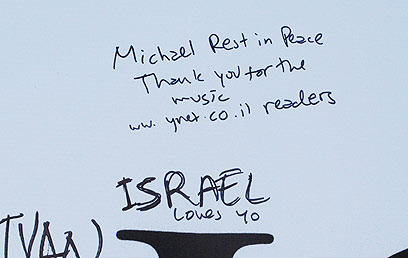 Michael Rest in Peace
Thank you for the
music
ww. ynet.co.il readers
ISRAEL
loves yo
IVAN)